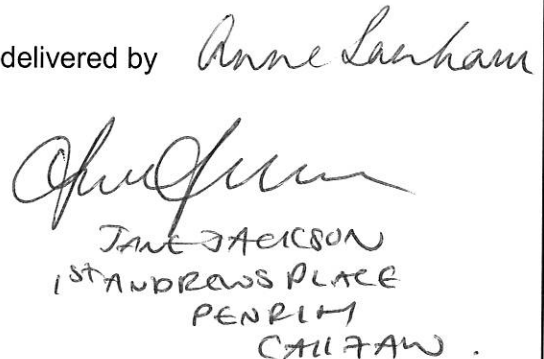 delivered by Anne Lanham
JANE JACKSON
1 ST ANDREWS PLACE
PENRITH
CA11 7AW.